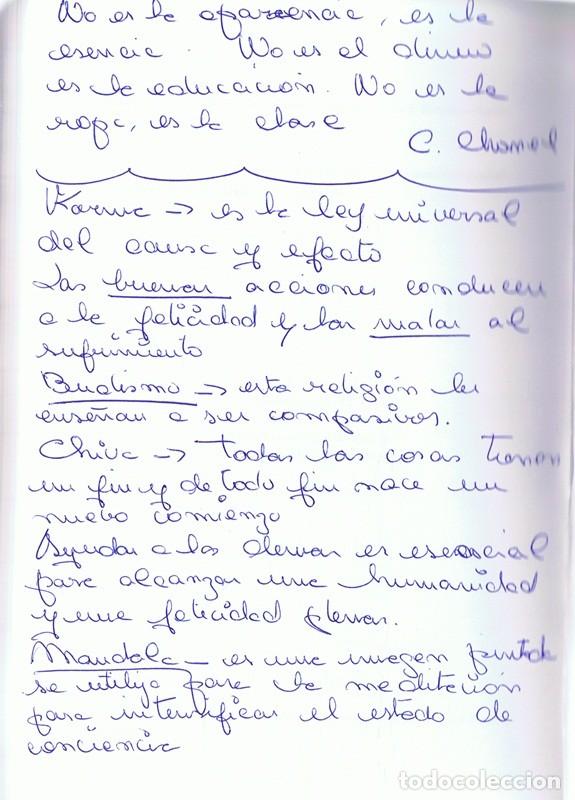 No es la apariencia, es la
esencia. No es el dinero
es la educación. No es la
ropa, es la clase
C. Chanel
Karma → es la ley universal
del causa y efecto
Las buenas acciones conducen
a la felicidad y las malas al
sufrimiento
Budismo → esta religión les
enseñan a ser compasivos.
Chiva → Todas las cosas tienen
un fin y de todo fin nace un
nuevo comienzo
Ayudar a los demas es esencial
para alcanzar una humanidad
y una felicidad plenas.
Mandala – es una imagen pintada
se utiliza para la meditación
para intensificar el estado de
conciencia
todocoleccion